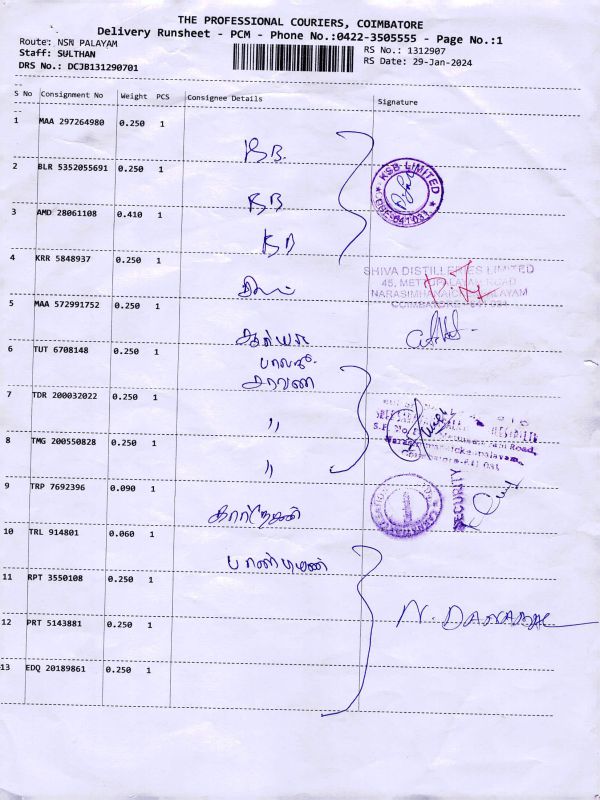 THE PROFESSIONAL COURIERS, COIMBATORE
Delivery Runsheet - PCM - Phone No.:0422-3505555 - Page No.:1
Route: NSN PALAYAM
RS No.: 1312907
Staff: SULTHAN
RS Date: 29-Jan-2024
DRS No.: DCJB131290701
S No Consignment No Weight PCS Consignee Details Signature
1 MAA 297264980 0.250 1
KSB LIMITED
2 BLR 5352055691 0.250 1
CBE-641 031
3 AMD 28061108 0.410 1
4 KRR 5848937 0.250 1
SHIVA DISTILLERIES LIMITED
45, METTUPALAYAM ROAD
NARASIMHANAICKENPALAYAM
COIMBATORE
5 MAA 572991752 0.250 1
6 TUT 6708148 0.250 1
சரவண
7 TDR 200032022 0.250 1 "
8 TMG 200550828 0.250 1 "
SECURITY
9 TRP 7692396 0.090 1
10 TRL 914801 0.060 1
11 RPT 3550108 0.250 1
12 PRT 5143881 0.250 1
13 EDQ 20189861 0.250 1